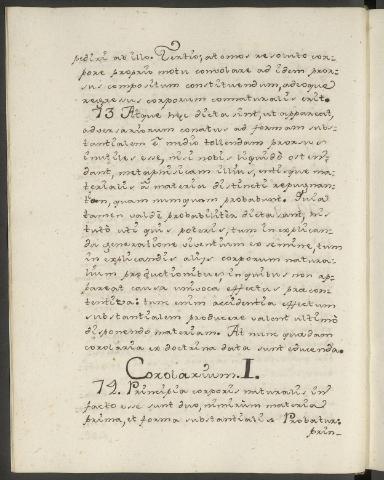 pediri ab illo. Tertio; atomos resoluto cor-
pore proprio motu convolare ad idem pror-
sus compositum constituendum, adeoque
regressus corporum connaturalis erit.
73 Atque hęc dicta sint, ut appareat,
adversariorum conatus ad formam subs-
tantialem è medio tollendam prorsus
inutiles esse, nisi nobis liquidò osten-
dant, metaphisicam illius, entisque ma-
terialis à materia distincti repugnan-
tiam, quam nunquam probabunt. Quia
tamen valdè probabiliter dicta sunt, his
tuto uti quis poterit, tum in explican-
da generatione viventium ex semine, tum
in explicandis alijs corporum natura-
lium productionibus, in quibus non ap-
pareat causa univoca effectus præcon-
tentiva: tum enim accidentia effectum
substantialem producere valent ultimò
disponendo materiam. At nunc quædam
corolaria ex doctrina data sunt educenda.
Corolarium. I.
74. Principia corporis naturalis in
facto esse sunt duo, nimirum materia
prima, et forma substantialis. Probatur:
prin-